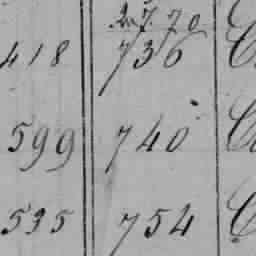 418 736 C
599 740 C
595 754 C